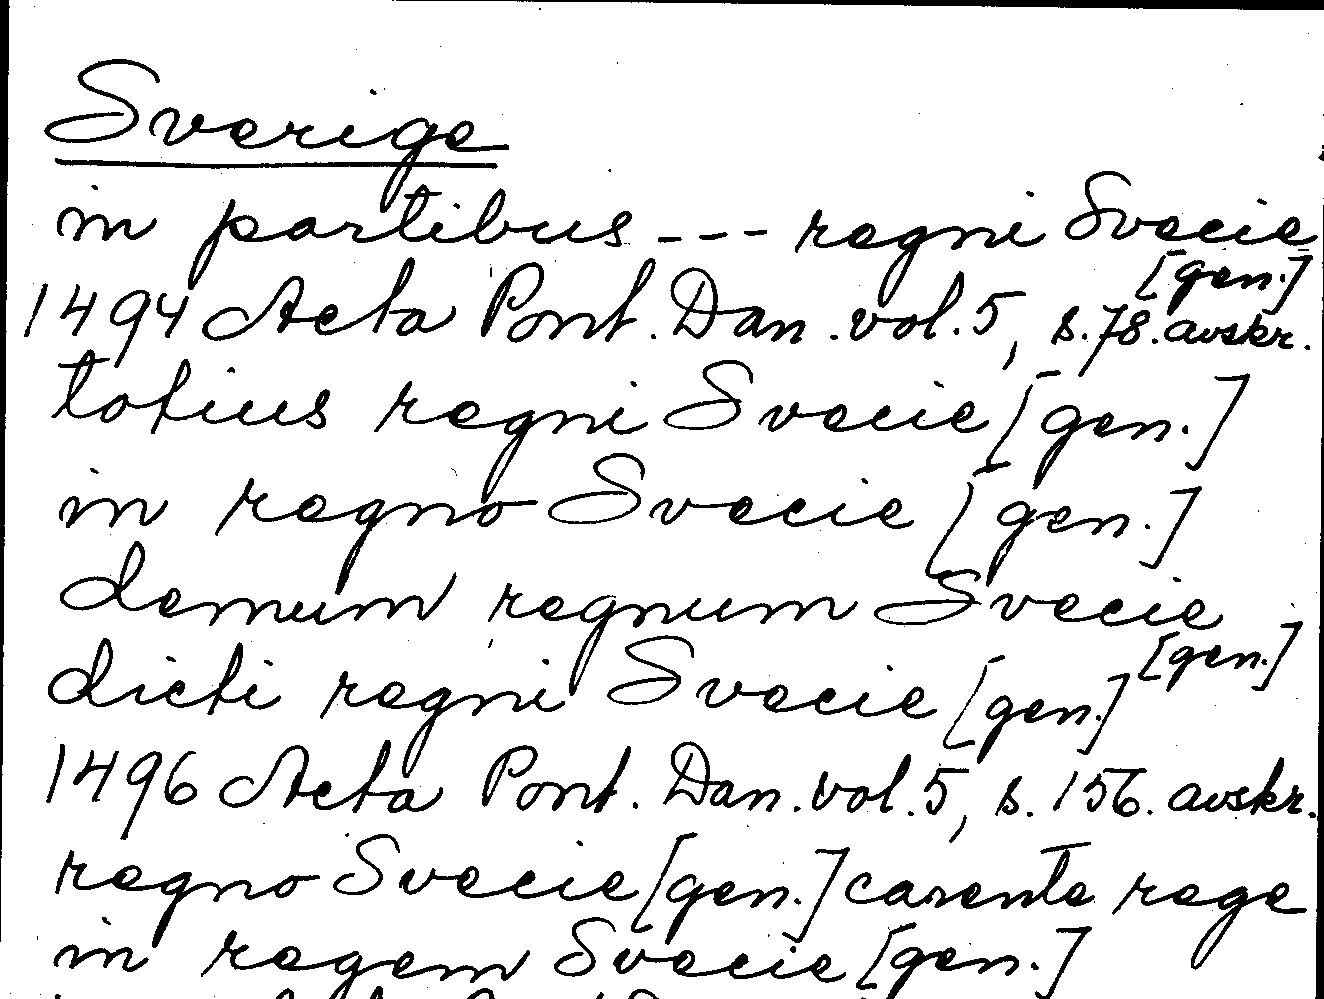 Sverige
in partibus --- regni Svecie
[gen.]
1494 Acta Pont. Dan. vol. 5, s. 78. avskr.
totius regni Svecie [gen.]
in regno Svecie [gen.]
demum regnum Svecie
[gen.]
dicti regni Svecie [gen.]
1496 Acta Pont. Dan. vol. 5, s. 156. avskr.
regno Svecie [gen.] carente rege
in regem Svecie [gen.]